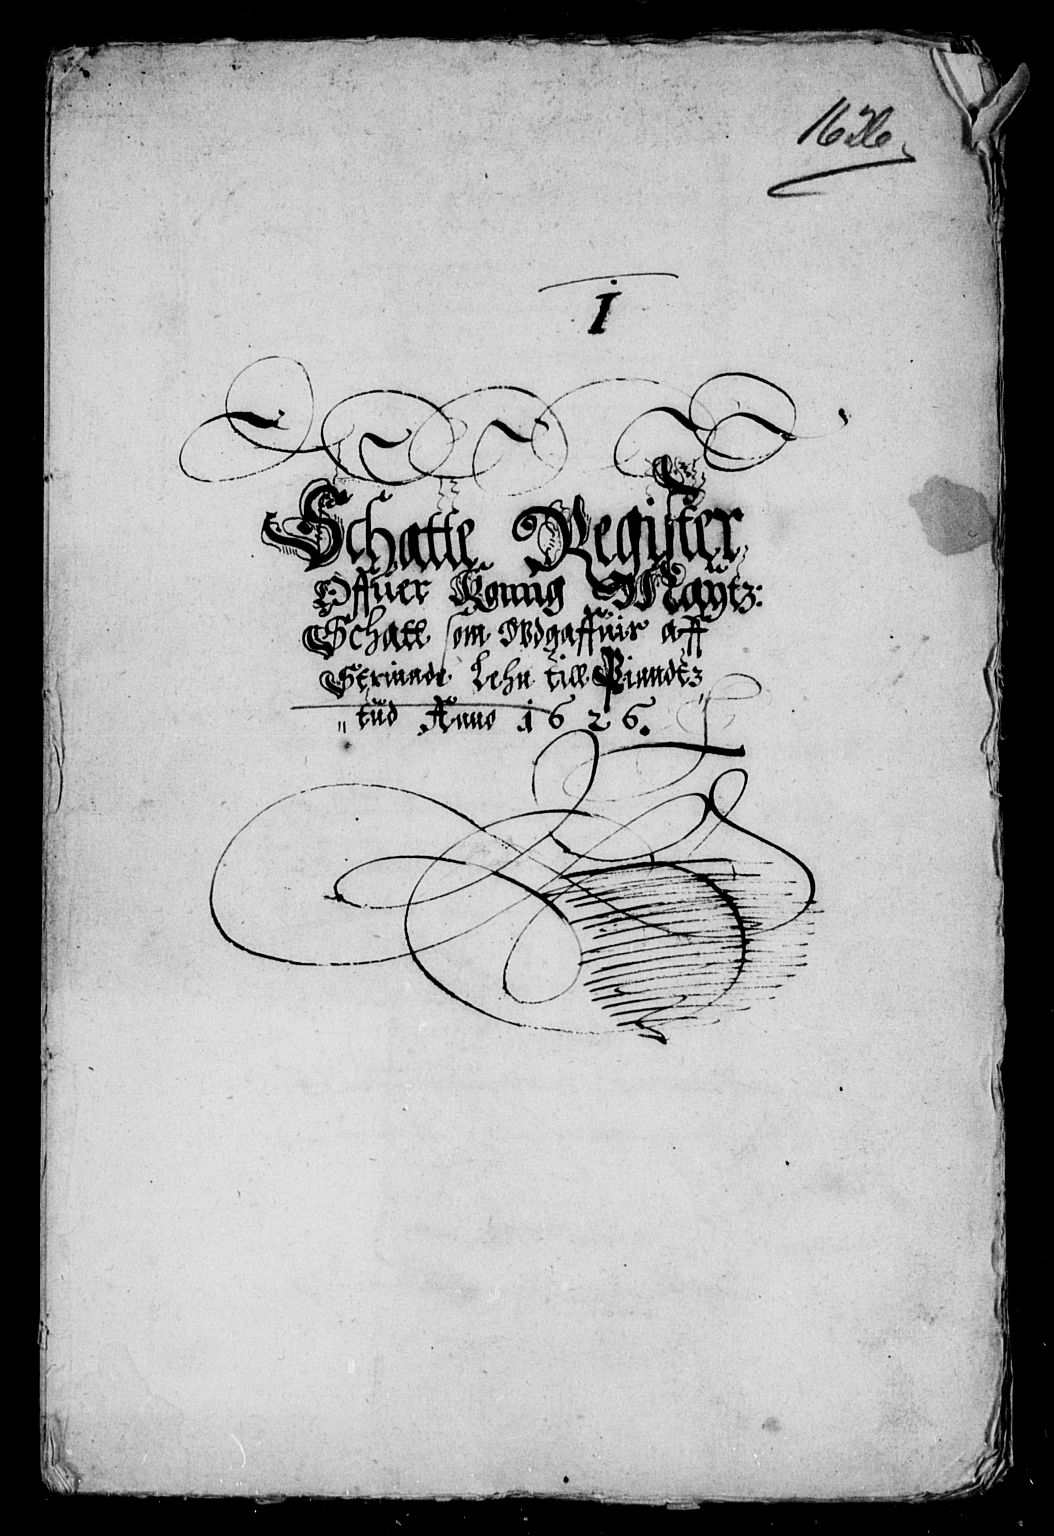 1626.
I
Schatte Register
Offuer Konnig Maytz:
Schatt som Wdgaffuis aff
Strinnde Lehn till Pinndtz
„ tüd Anno 1626.